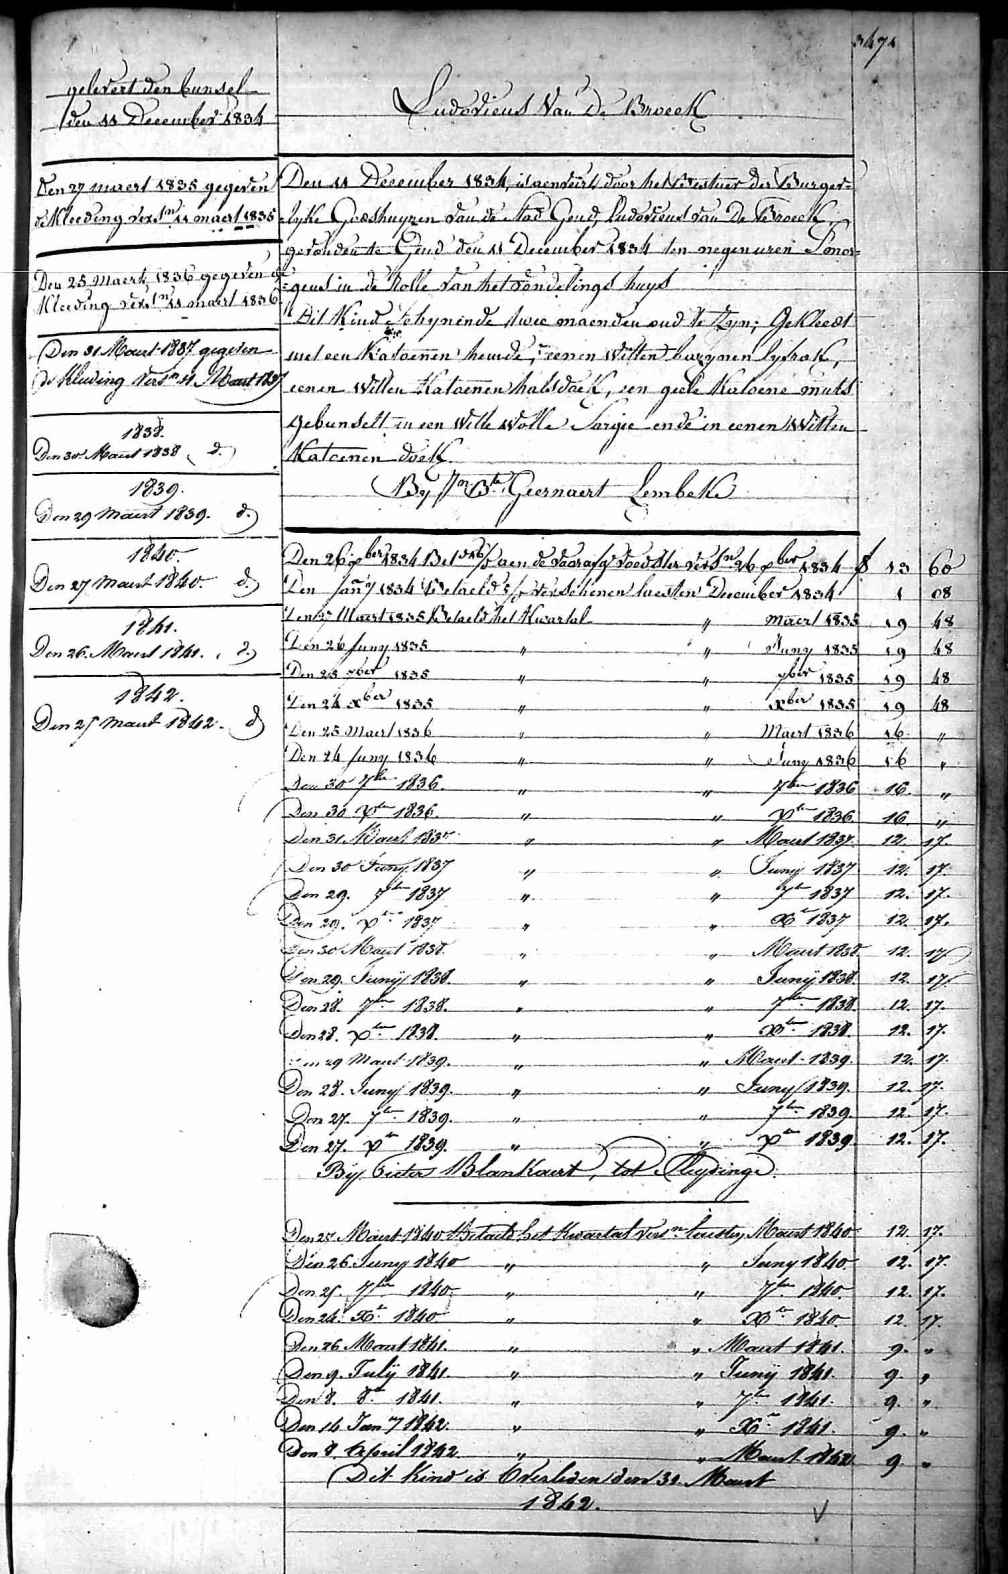 3474
gelevert den bunsel
den 11 December 1834
Ludovicus Van De Broeck
Den 27 maert 1835 gegeven
de Kleeding vers.en 11 maert 1835
Den 25 Maert 1836 gegeven de
Kleeding vers.en 11 maert 1836
Den 31 Maart 1837 gegeven
de Kleeding Vers.en 11 Maart 1837
1838.
Den 30 Maart 1838 d.
1839.
Den 29 Maart 1839. d.
1840.
Den 27 Maart 1840. d.
1841.
Den 26. Maart 1841. d.
1842.
Den 25 Maart 1842. d
Den 11 December 1834, is aenveirt door het bestuur der Burger=
=lyke Godshuyzen van de stad Gend, Ludovicus van De Broeck,
gevonden te Gend den 11 December 1834 ten negen uren S'mor=
=gens in de Rolle van het vondelings huys
Dit Kind schynende twee maenden oud te Zyn; Gekleed
met een Katoenen hemde, eenen Witten bazynen lyfrok,
eenen Witten Katoenen halsdoek, een geele Katoene muts
Gebunselt in een Witte Wolle Sargie ende in eenen Witten
Katoenen doek.
By Jn Bte Geernaert Lembeke
Den 26 xber 1834 Bet aen de voorafg voedster vers.en 26 xber 1834 f 13 60
Den Jany 1834 Betaeld verschenen laesten December 1834 1 08
Den 27 Maert 1835 Betaeld het Kwartal " maert 1835 19 48
Den 26 Juny 1835 " " Juny 1835 19 48
Den 25 7ber 1835 " " 7ber 1835 19 48
Den 24 xber 1835 " " xber 1835 19 48
Den 25 Maert 1836 " " Maert 1836 16 "
Den 24 Juny 1836 " " Juny 1836 16 "
Den 30 7ber 1836. " " 7ber 1836 16. "
Den 30 Xber 1836. " " Xber 1836 16. "
Den 31 Maart 1837 " " Maart 1837. 12. 17.
Den 30 Juny 1837 " " Juny 1837 12. 17.
Den 29. 7ber 1837 " " 7br 1837 12. 17.
Den 29. Xber 1837 " " Xr 1837 12. 17.
Den 30 Maart 1838. " " Maart 1838. 12. 17
Den 29. Junij 1838. " " Junij 1838. 12. 17.
Den 28. 7ber 1838. " " 7ber 1838. 12. 17.
Den 28. Xber 1838. " " Xber 1838. 12. 17.
Den 29 Maart 1839. " " Maart 1839. 12. 17.
Den 28. Junij 1839. " " Junij 1839. 12. 17.
Den 27. 7br 1839. " " 7br 1839. 12. 17.
Den 27. Xbr 1839. " " Xbr 1839 12. 17.
Bij Pieter Blankaert, tot Sleydinge.
Den 27 Maart 1840 Betaeld het Kwartal Vers.en laesten Maart 1840 12. 17.
Den 26 Juny 1840 " " Juny 1840. 12. 17.
Den 25 7ber 1840. " " 7ber 1840. 12. 17.
Den 24. Xr 1840 " " Xbr 1840. 12. 17.
Den 26 Maart 1841. " " Maart 1841. 9. "
Den 9. Julij 1841. " " Junij 1841. 9. "
Den 8. 8br 1841. " " 7br 1841. 9. "
Den 14 Jany 1842. " " Xr 1841. 9. "
Den 8. April 1842 " " Maart 1842 9 "
Dit Kind is Overleden den 31 Maart
1842.
V